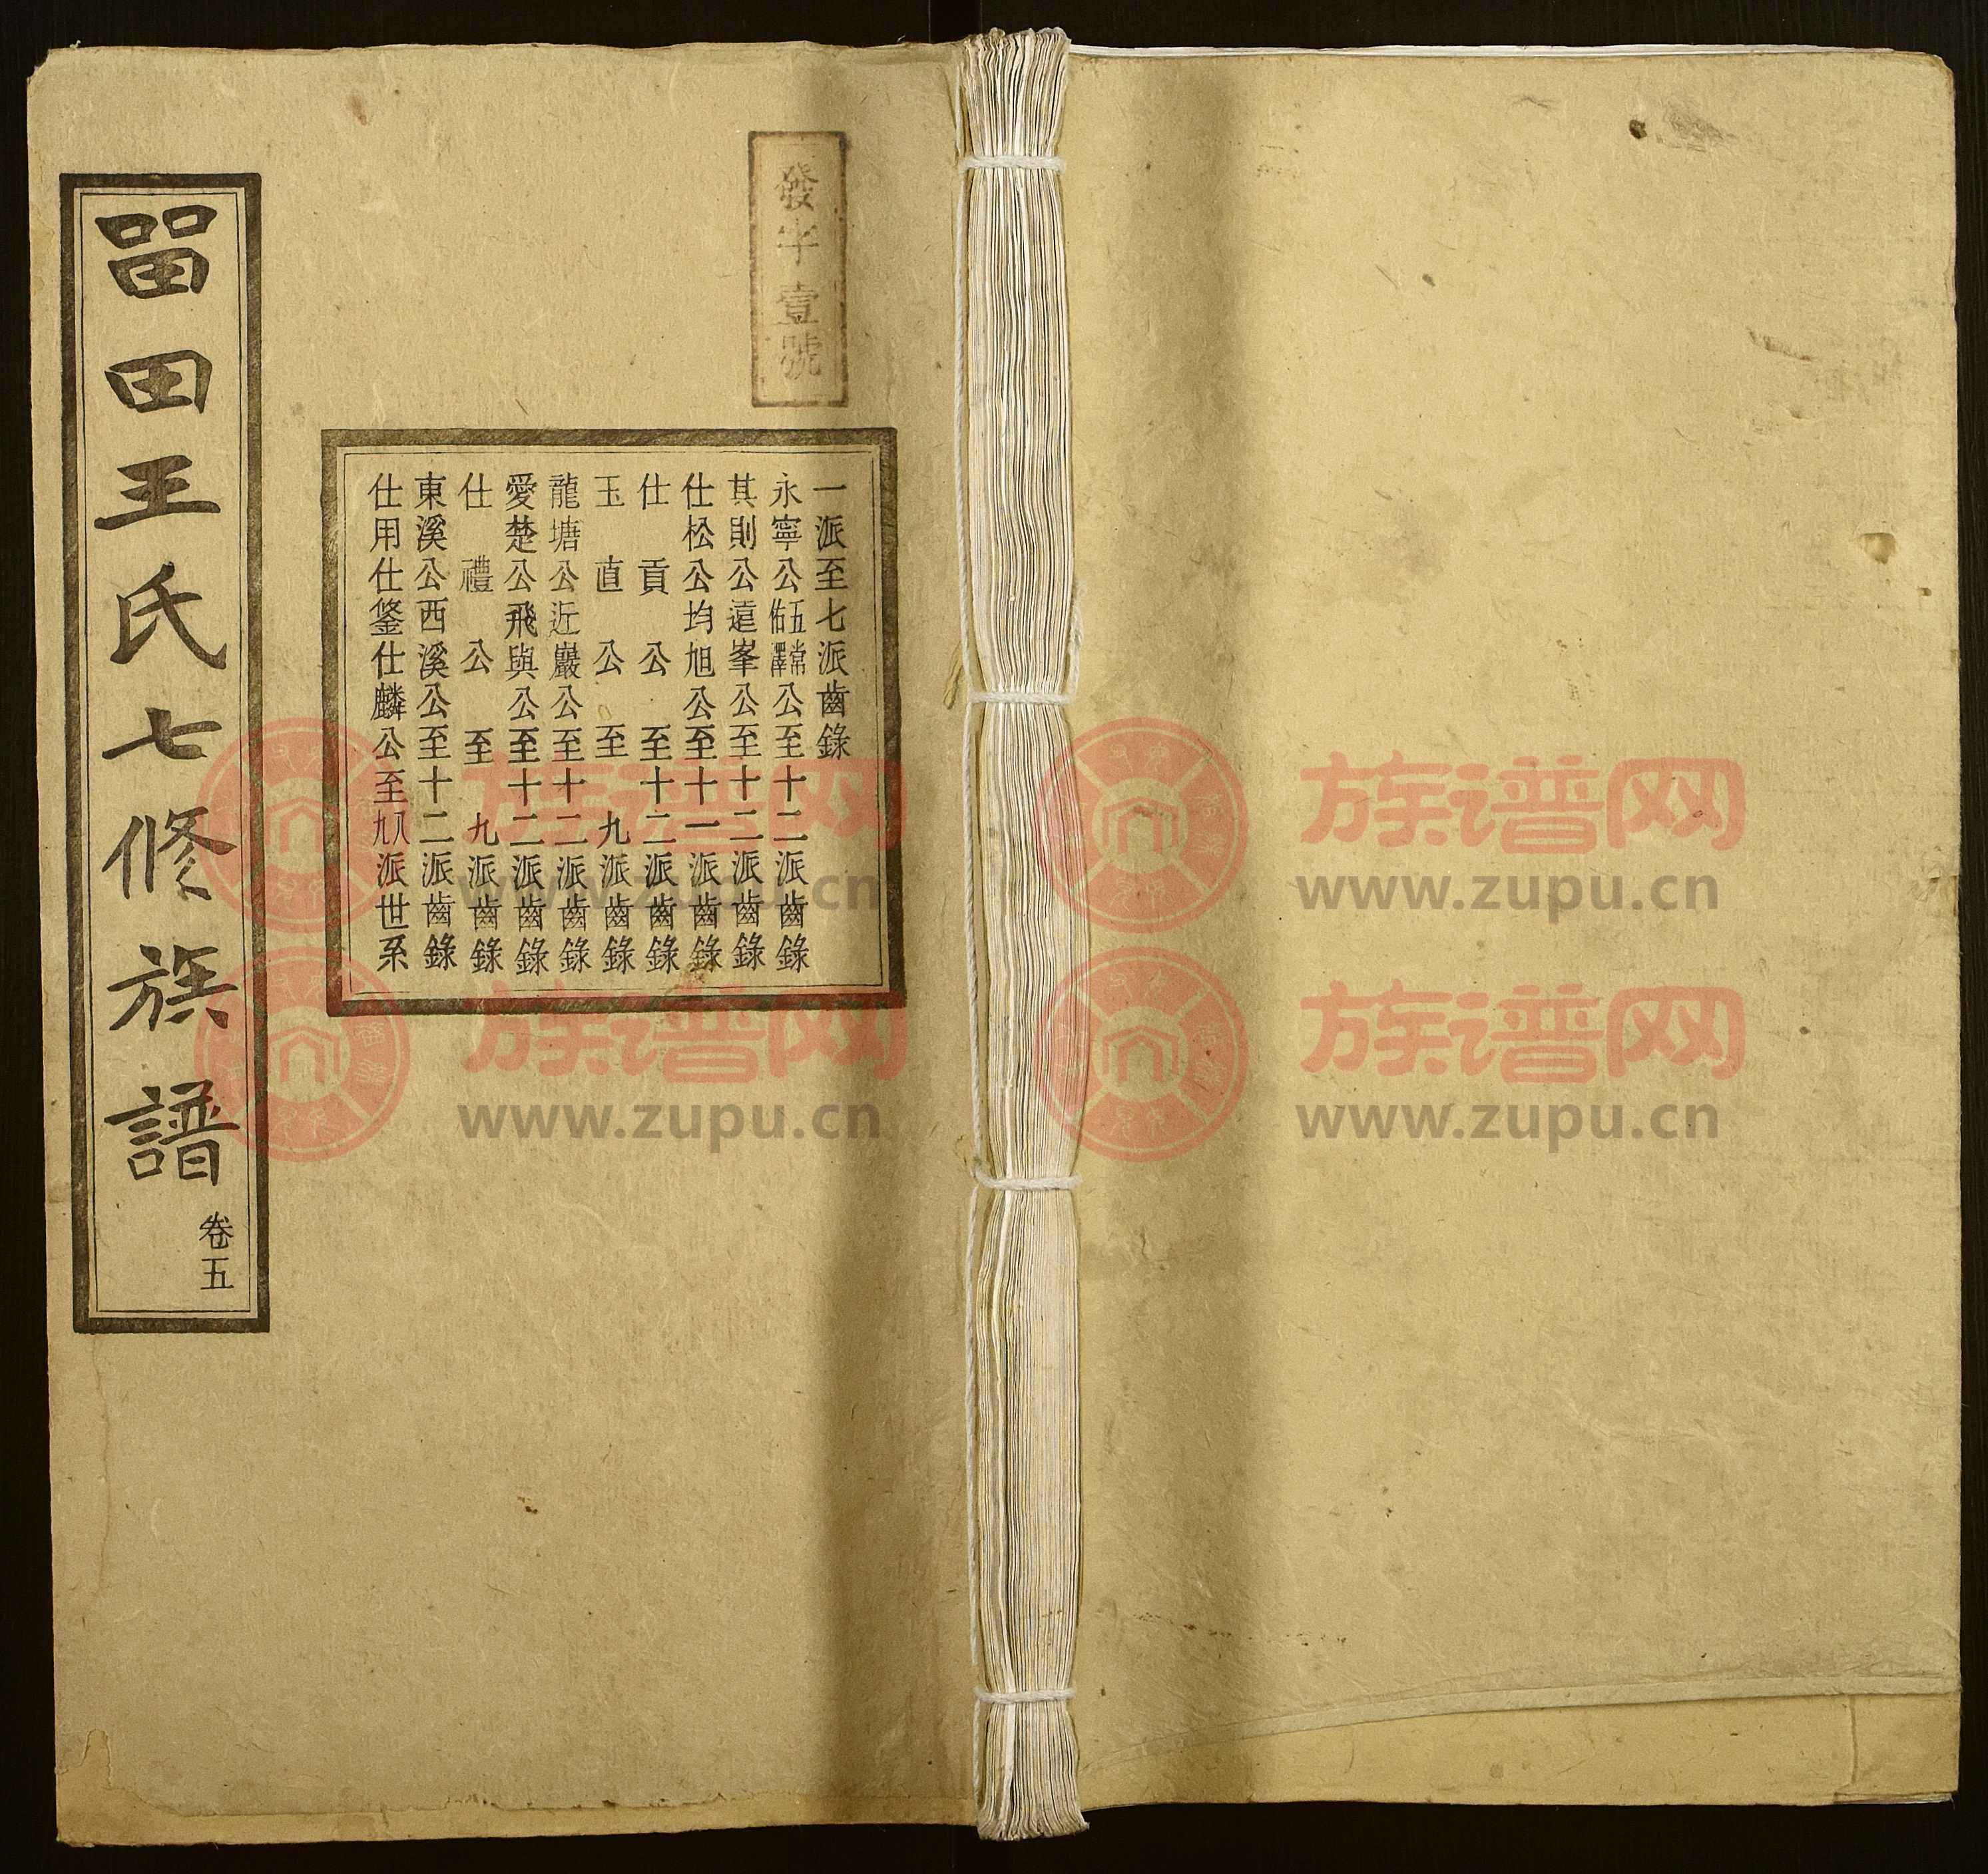 畱田王氏七修族譜 卷五
發字壹號
一派至七派齒錄
永寧公五常佑澤公至十二派齒錄
其則公遠峯公至十二派齒錄
仕松公均旭公至十一派齒錄
仕貢公至十二派齒錄
玉直公至九派齒錄
龍塘公近巖公至十二派齒錄
愛楚公飛與公至十二派齒錄
仕禮公至九派齒錄
東溪公西溪公至十二派齒錄
仕用仕鋚仕麟公至八九派世系
族谱网
www.zupu.cn
族谱网
www.zupu.cn
族谱网
www.zupu.cn
族谱网
www.zupu.cn